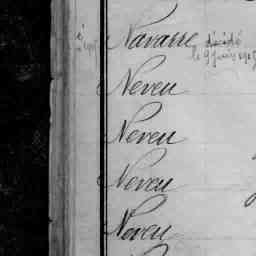 Navarre décédé
le 9 Juin
Neveu
Neveu
Neveu
Neveu